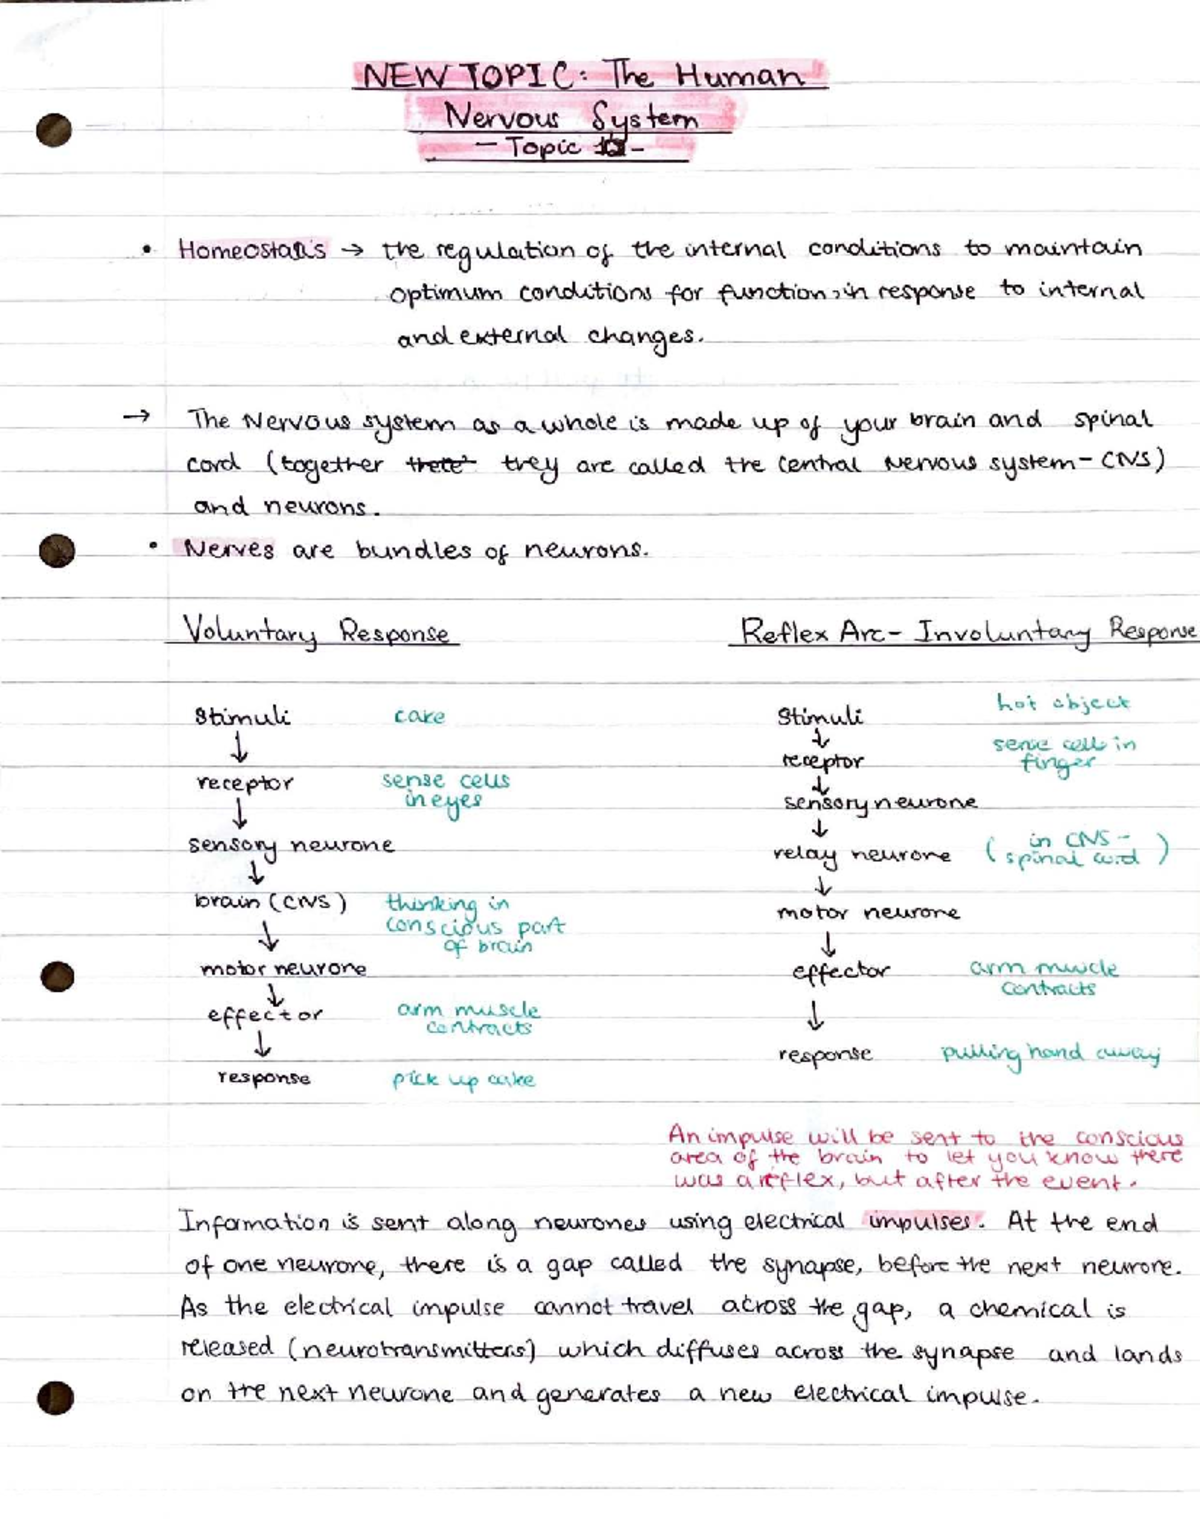 NEW TOPIC: The Human
Nervous System
- Topic -
• Homeostasis → the regulation of the internal conditions to maintain
optimum conditions for function, in response to internal
and external changes.
→ The Nervous system as a whole is made up of your brain and spinal
cord (together they are called the central Nervous system - CNS)
and neurons.
• Nerves are bundles of neurons.
Voluntary Response
Stimuli cake
↓
receptor sense cells
in eyes
↓
sensory neurone
↓
brain (CNS) thinking in
conscious part
of brain
↓
motor neurone
↓
effector arm muscle
contracts
↓
response pick up cake
Reflex Arc - Involuntary Response
Stimuli hot object
↓
receptor sense cells in
finger
↓
sensory neurone
↓
relay neurone (in CNS -
spinal cord)
↓
motor neurone
↓
effector arm muscle
contracts
↓
response pulling hand away
An impulse will be sent to the conscious
area of the brain to let you know there
was a reflex, but after the event.
Information is sent along neurones using electrical impulses. At the end
of one neurone, there is a gap called the synapse, before the next neurone.
As the electrical impulse cannot travel across the gap, a chemical is
released (neurotransmitters) which diffuses across the synapse and lands
on the next neurone and generates a new electrical impulse.